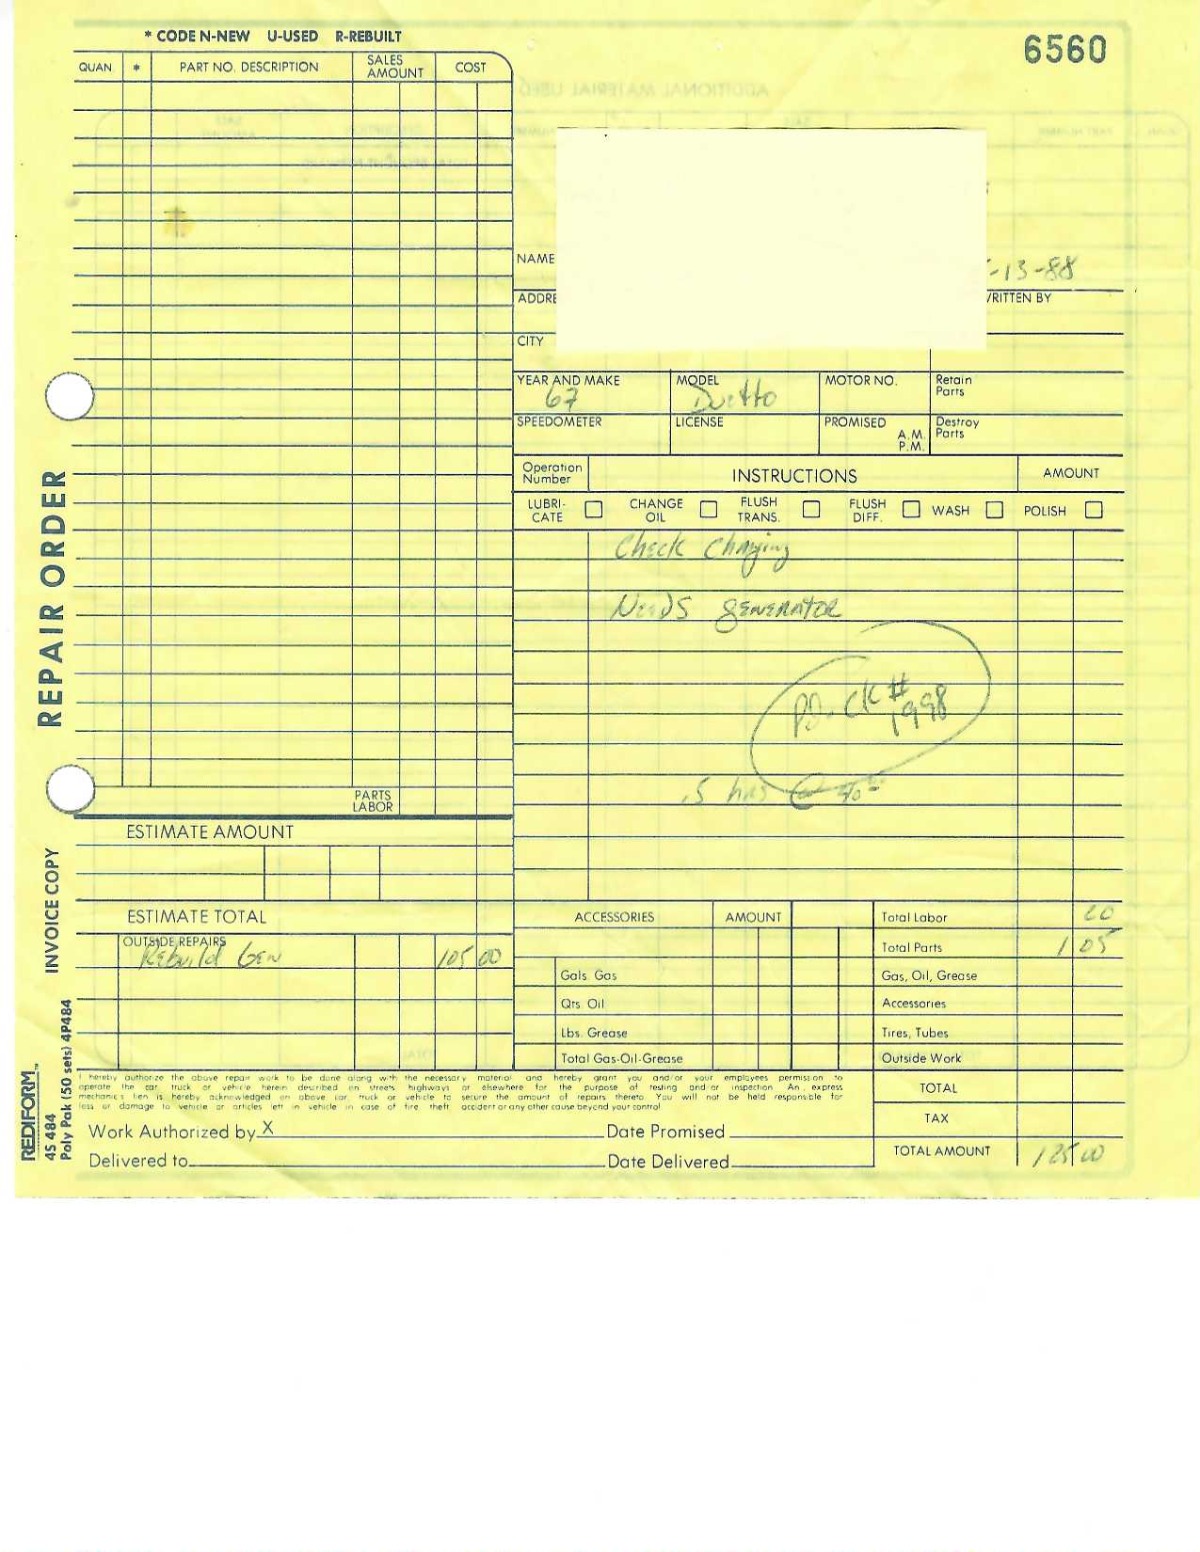 * CODE N-NEW U-USED R-REBUILT
6560
QUAN. * PART NO. DESCRIPTION SALES AMOUNT COST
ADDITIONAL MATERIAL USED
NAME
-13-88
ADDRE
RITTEN BY
CITY
YEAR AND MAKE MODEL MOTOR NO. Retain Parts
67 Duetto
SPEEDOMETER LICENSE PROMISED A.M. P.M. Destroy Parts
Operation Number INSTRUCTIONS AMOUNT
LUBRI-CATE CHANGE OIL FLUSH TRANS. FLUSH DIFF. WASH POLISH
Check Charging
Needs generator
PD. CK# 1998
.5 hrs @
PARTS
LABOR
ESTIMATE AMOUNT
ESTIMATE TOTAL
OUTSIDE REPAIRS
Rebuild Gen 105 00
ACCESSORIES AMOUNT
Gals. Gas
Qrs. Oil
Lbs. Grease
Total Gas-Oil-Grease
Total Labor
Total Parts 105
Gas, Oil, Grease
Accessories
Tires, Tubes
Outside Work
TOTAL
TAX
TOTAL AMOUNT 125 00
I hereby authorize the above repair work to be done along with the necessary material and hereby grant you and/or your employees permission to
operate the car, truck or vehicle herein described on streets, highways or elsewhere for the purpose of testing and/or inspection. An express
mechanics lien is hereby acknowledged on above car, truck or vehicle to secure the amount of repairs thereto. You will not be held responsible for
loss or damage to vehicle or articles left in vehicle in case of fire, theft, accident or any other cause beyond your control
Work Authorized by X Date Promised
Delivered to Date Delivered
REPAIR ORDER
INVOICE COPY
REDIFORM™
4S 484
Poly Pak (50 sets) 4P484